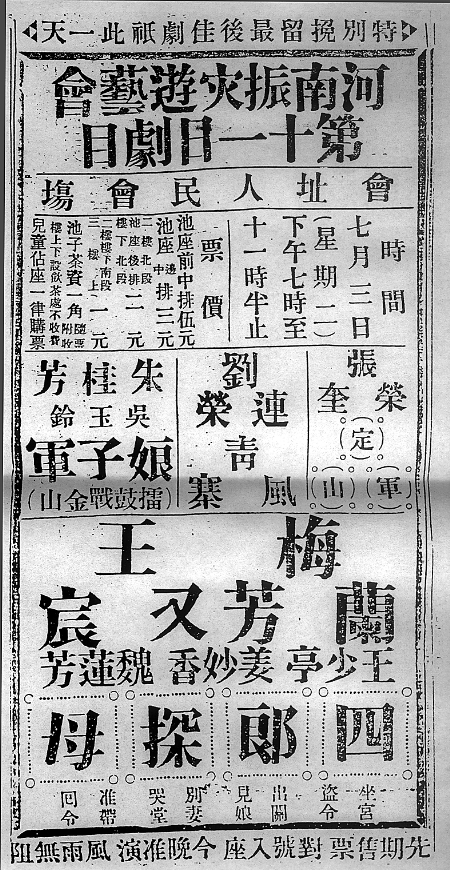 特別挽留最後佳劇祇此一天
河南振灾遊藝會
第十一日劇日
會址人民會塲
時間
七月三日
(星期二)
下午七時至
十一時半止
票價
池座前中排伍元
池座邊中排三元
二樓北段
池座後排
二元
樓下北段
樓下南段
一元
三樓上
元
池子茶資一角
隨票附收
樓上下設飲茶處不收費
兒童佔座一律購票
張榮奎
定軍山
劉連榮
青風寨
朱桂芳
吳玉鈴
娘子軍
(擂鼓戰金山)
梅蘭芳
王又宸
王少亭 姜妙香 魏蓮芳
四郎探母
坐宮
盜令
出關
見娘
別妻
哭堂
准帶
回令
先期售票 對號入座 今晚准演 風雨無阻